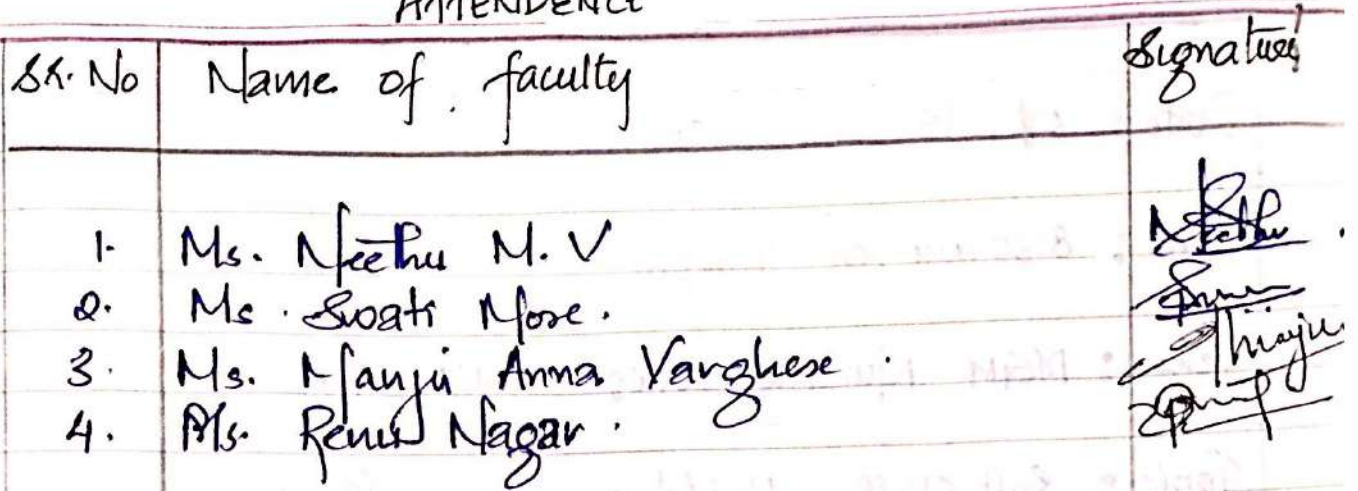 ATTENDENCE
SR. No Name of faculty Signature
1. Ms. Neethu M. V Neethu.
2. Ms. Swati More.
3. Ms. Manju Anna Varghese. Manju
4. Ms. Renu Nagar.